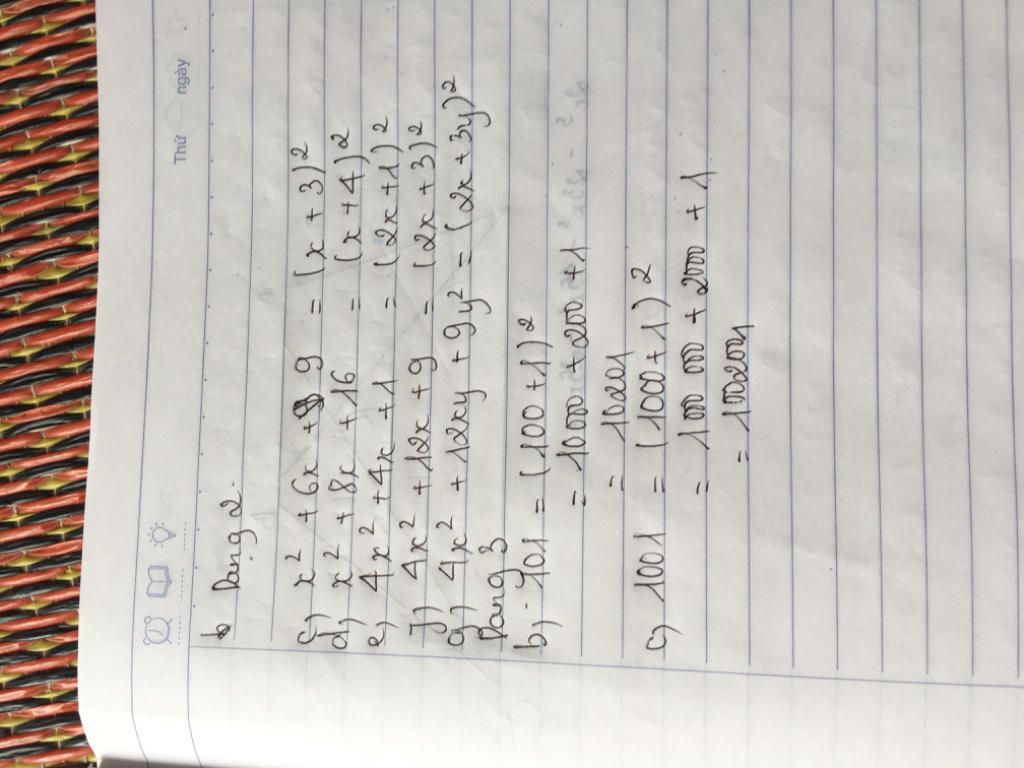 Thứ ngày
Dạng 2.
c, x² + 6x + 9 = (x + 3)²
d, x² + 8x + 16 = (x + 4)²
e, 4x² + 4x + 1 = (2x + 1)²
f, 4x² + 12x + 9 = (2x + 3)²
g, 4x² + 12xy + 9y² = (2x + 3y)²
Dạng 3
b, 101 = (100 + 1)²
= 10000 + 200 + 1
= 10201
c, 1001 = (1000 + 1)²
= 1000 000 + 2000 + 1
= 1002001